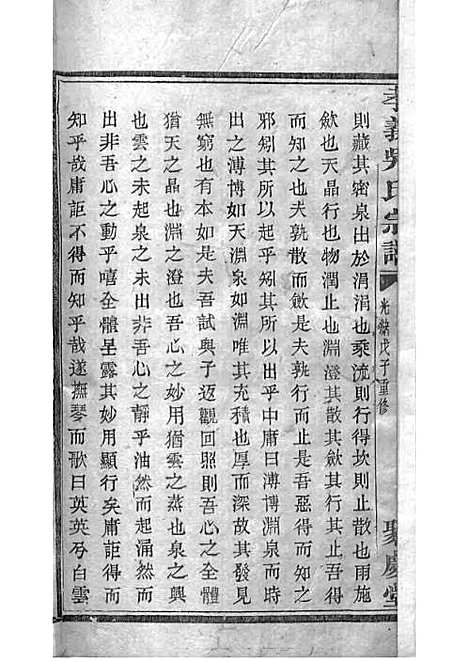 孝義吳氏宗譜
光緒戊子重修
聚慶堂
則藏其密泉出於涓涓也乘流則行得坎則止散也雨施
斂也天晶行也物潤止也淵澄其散其斂其行其止吾得
而知之也夫孰散而斂是夫孰行而止是吾惡得而知之
邪矧其所以起乎矧其所以出乎中庸曰溥博淵泉而時
出之溥博如天淵泉如淵惟其充積也厚而深故其發見
無窮又若如是也夫吾試與子返觀回照則吾心之全體
猶天之晶也淵之澄也吾心之妙用猶雲之蒸也泉之興
也雲之未起泉之未出非吾心之靜乎油然而起涌然而
出非吾心之動乎嘻全體呈露其妙用顯行矣庸詎得而
知乎哉庸詎不得而知乎哉遂撫琴而歌曰英英兮白雲